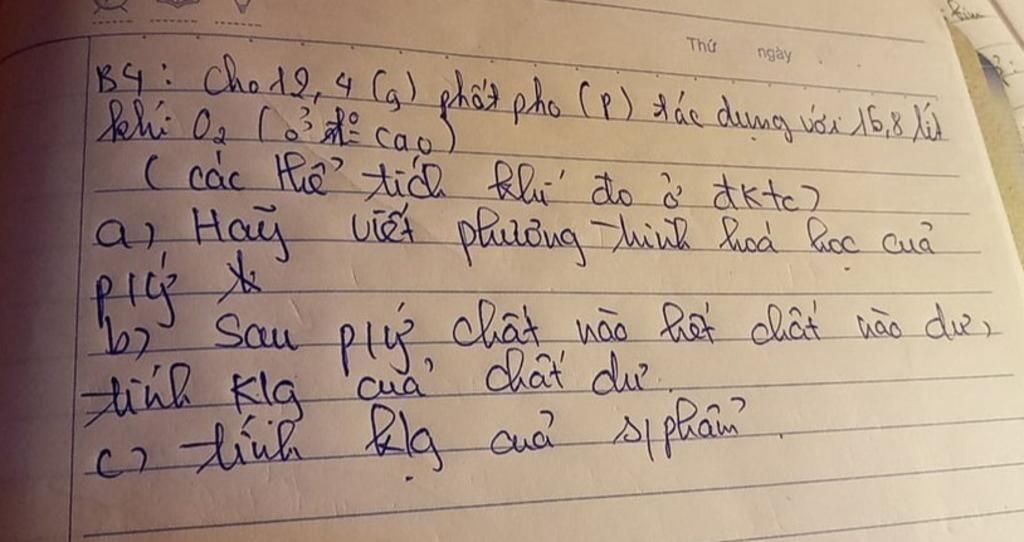 Thứ ngày
B4: Cho 12,4 (g) phốt pho (P) tác dụng với 16,8 lít
khí O₂ (ở tº cao)
(các thể tích khí đo ở đktc)
a) Hãy viết phương trình hoá học của
p/ứ
b) Sau p/ứ, chất nào hết chất nào dư,
tính klg của chất dư.
c) tính klg của s/phẩm.